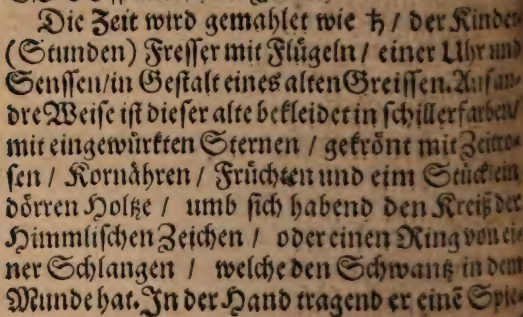 Die Zeit wird gemahlet wie ♄ / der Kinder
(Stunden) Fresser mit Flügeln / einer Uhr und
Senssen/in Gestalt eines alten Greissen. Auf an-
dre Weise ist dieser alte bekleidet in schillerfarben/
mit eingewürkten Sternen / gekrönt mit Zeitro-
sen / Kornähren / Früchten und eim Stück ein
dörren Holtze / umb sich habend den Kreiß der
Himmlischen Zeichen / oder einen Ring von ei-
ner Schlangen / welche den Schwantz in dem
Munde hat. In der Hand tragend er einẽ Spie-